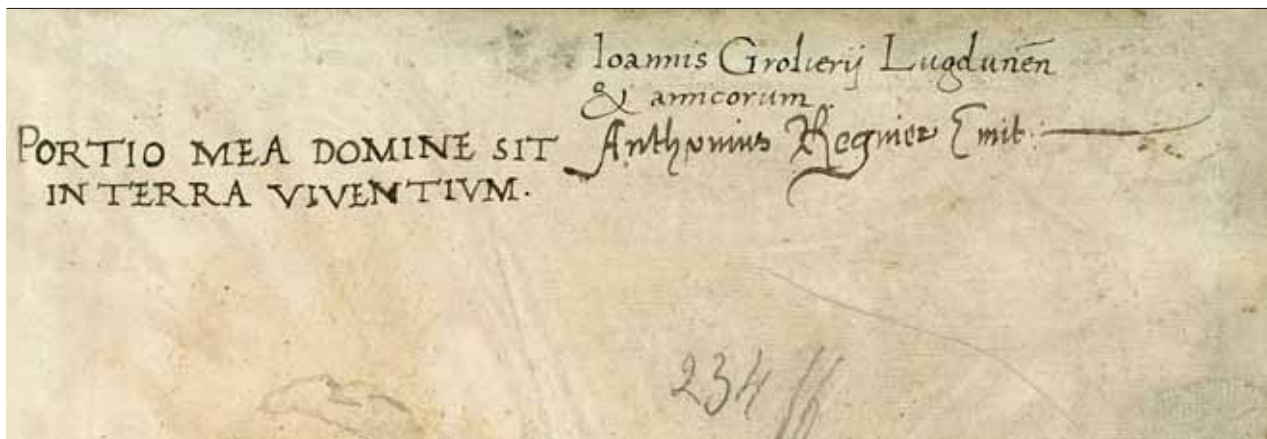 Ioannis Grolierij Lugdunēn
& amicorum.
PORTIO MEA DOMINE SIT
IN TERRA VIVENTIVM.
Anthonius Regnier Emit.
234